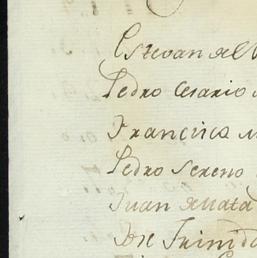 Estevan del
Pedro Cesario
Francisca M
Pedro Sereno
Juan de Mata
Jph Trinida